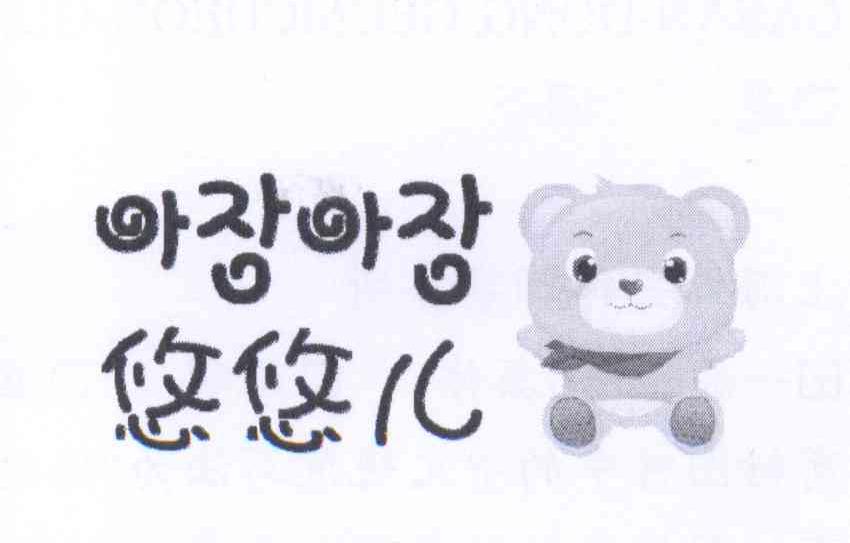 아장아장
悠悠儿